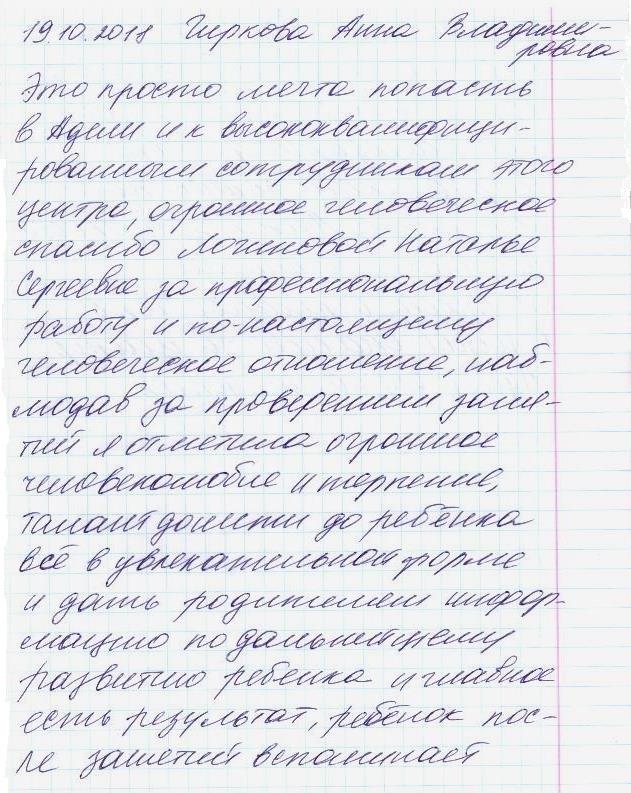 19.10.2018 Гиркова Анна Владими-
ровна
Это просто мечта попасть
в Адели и к высококвалифици-
рованным сотрудникам этого
центра, огромное человеческое
спасибо Логиновой Наталье
Сергеевне за профессиональную
работу и по-настоящему
человеческое отношение, наб-
людав за проверением заня-
тий я отметила огромное
человеколюбие и терпение,
талант донести до ребёнка
всё в увлекательной форме
и дать родителем инфор-
мацию по дальнейшему
развитию ребенка и главное
есть результат, ребёнок пос-
ле занятий вспоминает